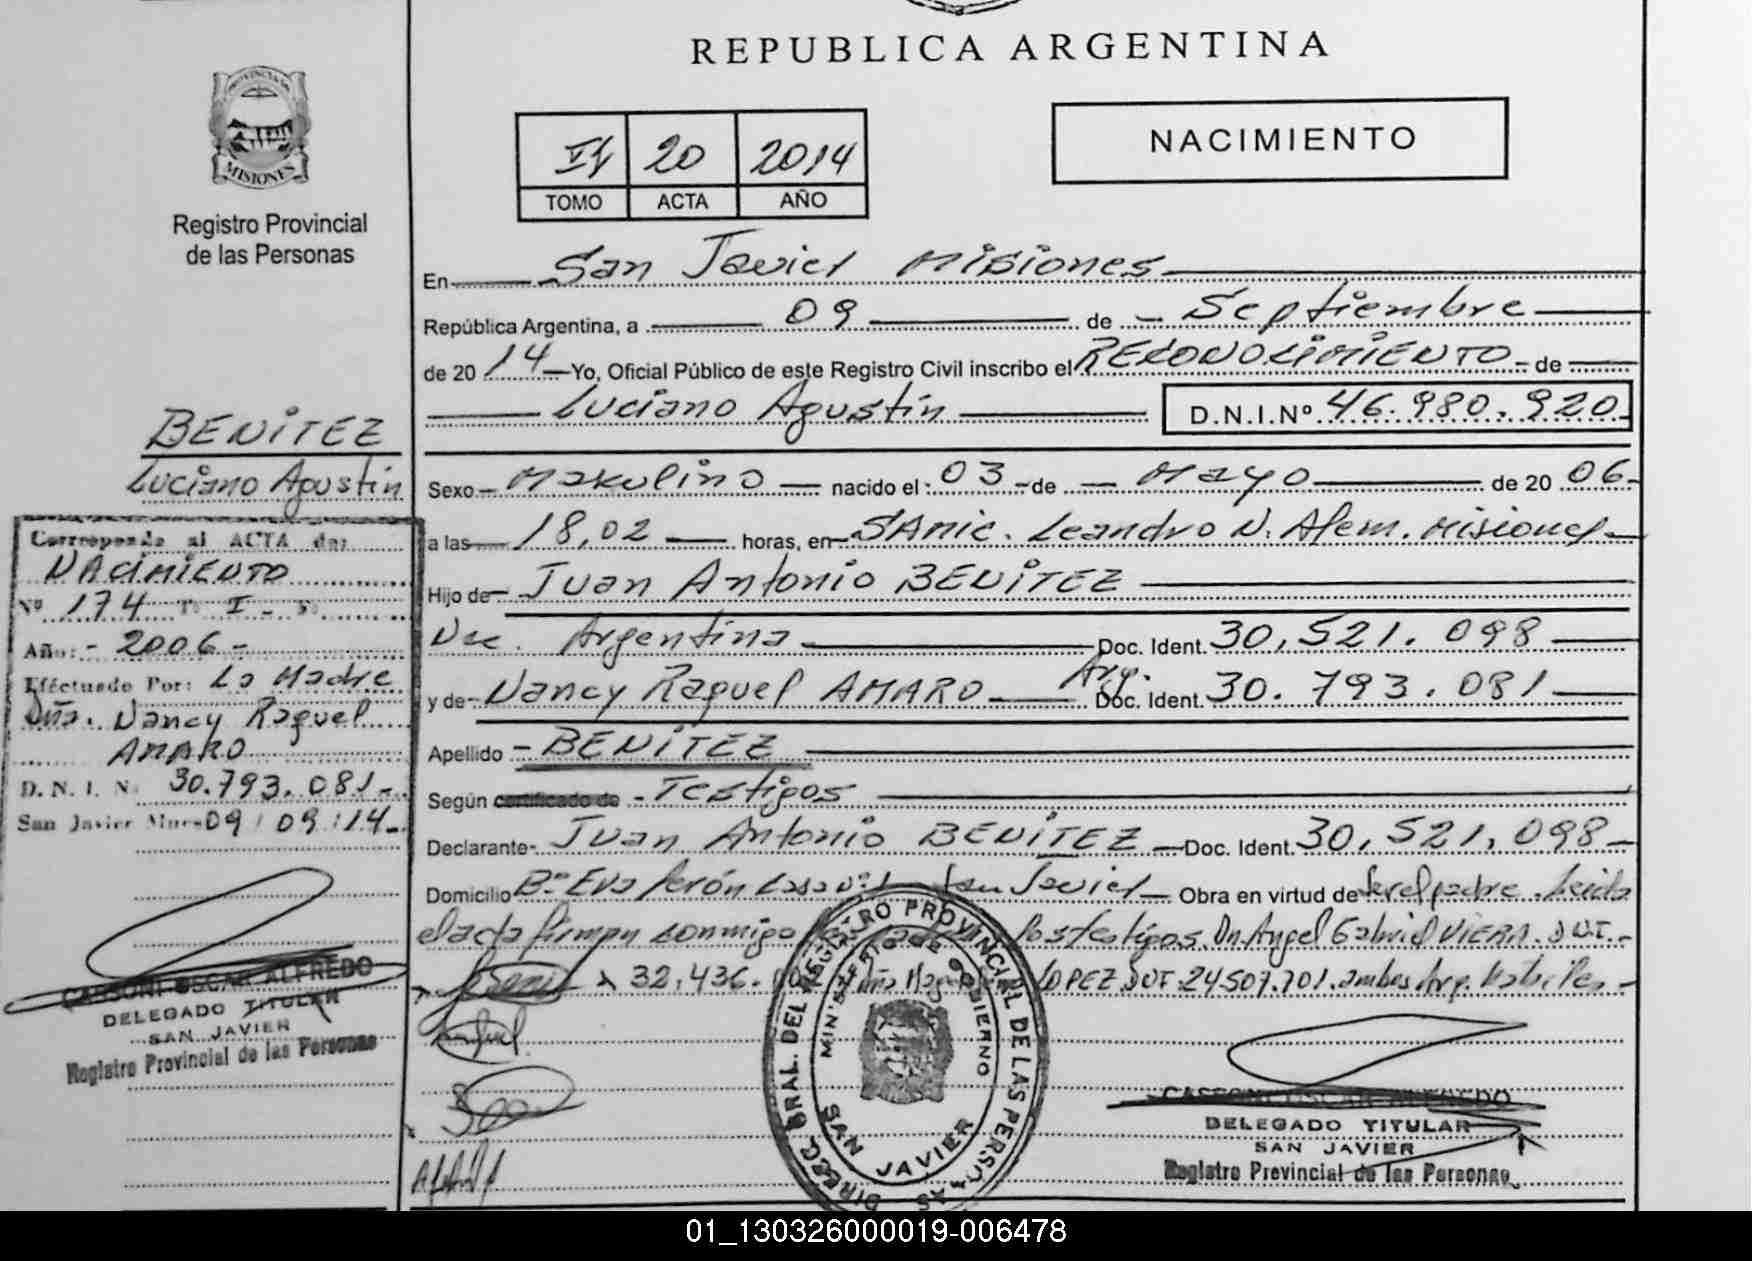 REPUBLICA ARGENTINA
PROVINCIA DE
MISIONES
Registro Provincial
de las Personas
II 20 2014
TOMO ACTA AÑO
NACIMIENTO
En San Javier Misiones
República Argentina, a 09 de Septiembre
de 2014 Yo, Oficial Público de este Registro Civil inscribo el RECONOCIMIENTO de
Luciano Agustín D.N.I.Nº 46.980.920
BENITEZ
Luciano Agustín
Sexo Masculino nacido el 03 de Mayo de 2006
a las 18,02 horas, en SAMIC. Leandro N. Alem. Misiones
Hijo de Juan Antonio BENITEZ
Nac. Argentina Doc. Ident. 30,521.098
y de Nancy Raquel AMARO Arg. Doc. Ident. 30.793.081
Apellido BENITEZ
Según certificado de Testigos
Declarante Juan Antonio BENITEZ Doc. Ident. 30,521,098
Domicilio Bº Eva Perón Casa San Javier Obra en virtud de ser el padre. Leida
el acta firman conmigo los testigos. Dn Angel Gabriel VIERA. D.U.T.
32,436. LOPEZ DUT. 24507.701. ambos Arg. Habiles
Corresponde al ACTA de:
NACIMIENTO
Nº 174 T: I
Año: 2006
Efectuado Por: La Madre
Dña. Nancy Raquel
AMARO
D. N. I. N. 30.793.081
San Javier Mnes 09/09/14
CASSONI OSCAR ALFREDO
DELEGADO TITULAR
SAN JAVIER
Registro Provincial de las Personas
DIREC. GRAL. DEL REGISTRO PROVINCIAL DE LAS PERSONAS
MINISTERIO DE GOBIERNO
SAN JAVIER
CASSONI OSCAR ALFREDO
DELEGADO TITULAR
SAN JAVIER
Registro Provincial de las Personas
01_130326000019-006478